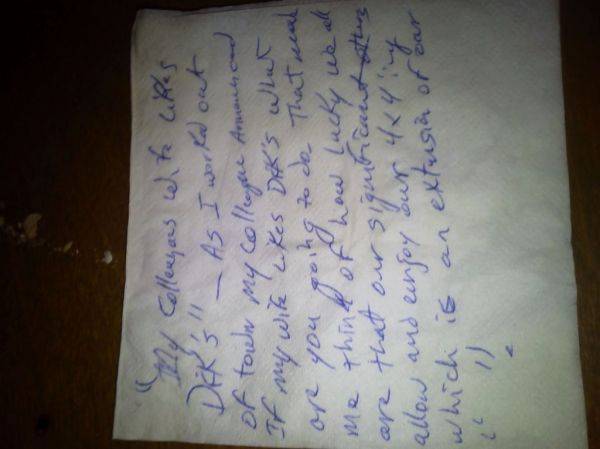 "My Colleagues wife likes
DEK'S" — AS I worked out
of town my colleague Announced
If my wife likes DEK'S what
are you going to do That made
me think of how lucky we all
are that our significant others
allow and enjoy our 4x4'ing
which is an extension of our